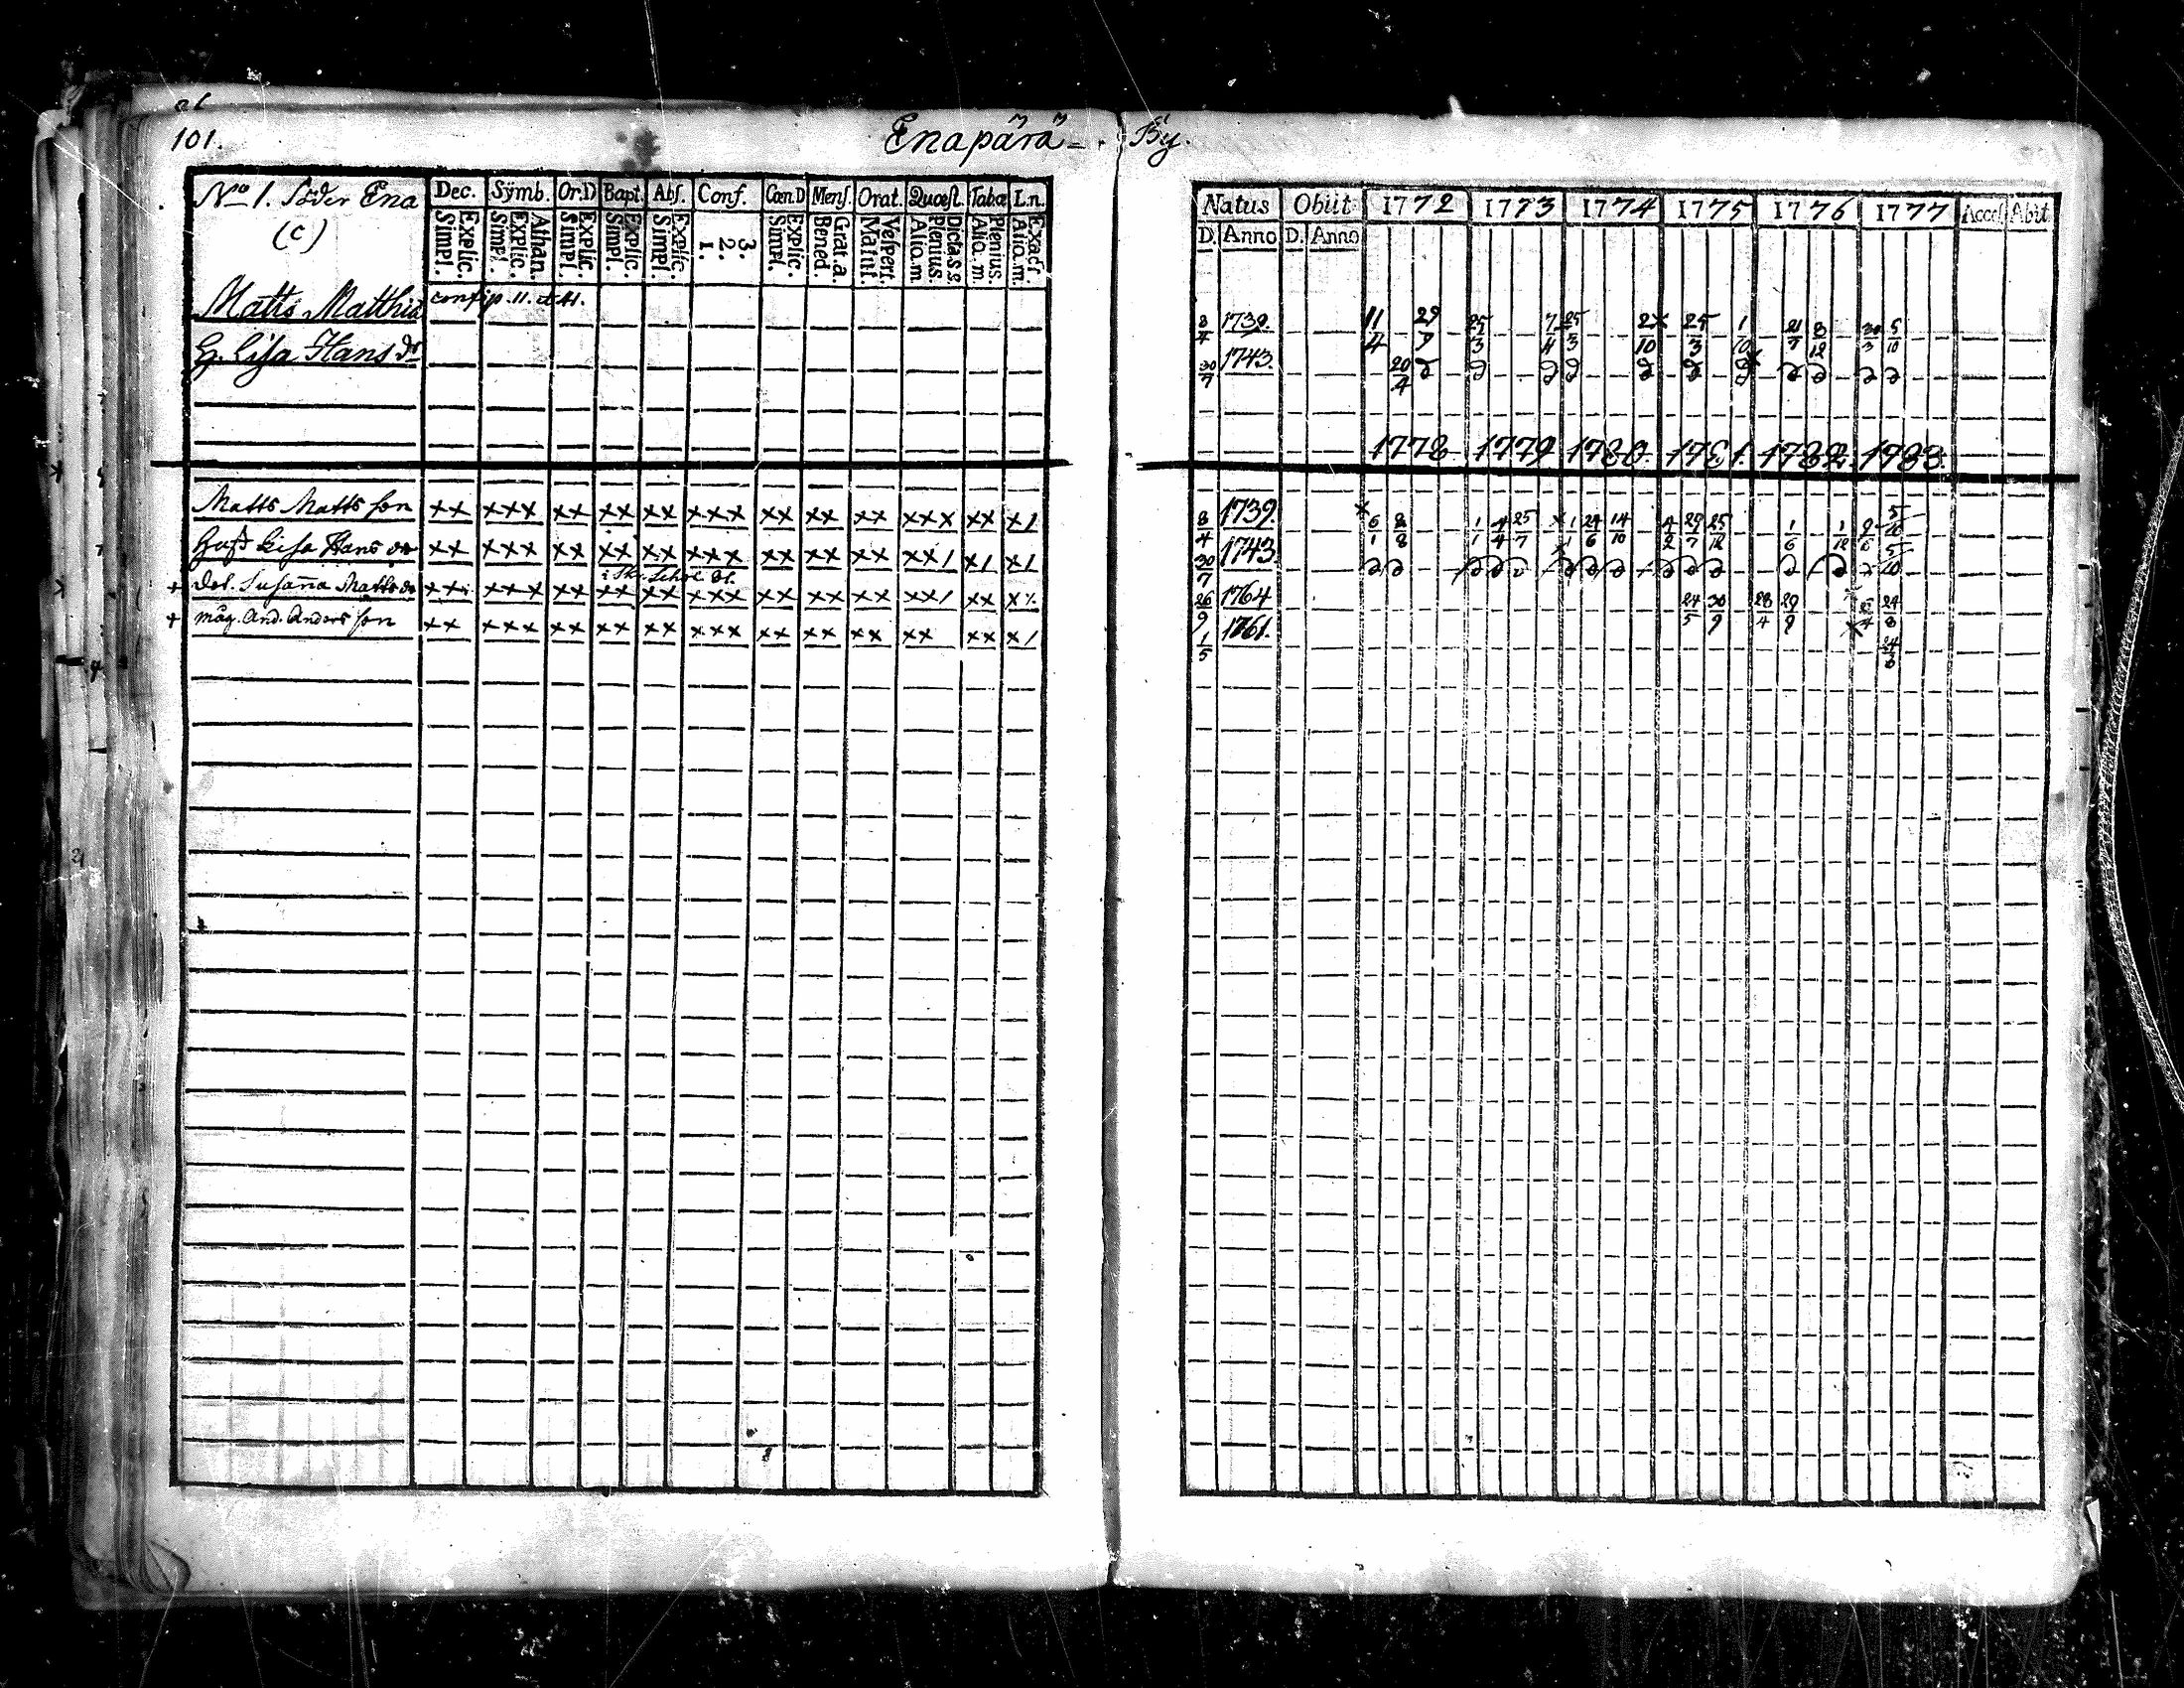 101.
Enapärä - By.
No 1. Söder Ena
(c)
Dec. Symb. Or.D Bapt. Abs. Conf. Cœn.D Mens. Orat. Quæst. Tabæ L.n.
Explic. Simpl. Athan. Explic. Simpl. Explic. Simpl. Explic. Simpl. Explic. Simpl. 3. 2. 1. Explic. Simpl. Grat.a. Bened. Vespert. Matut. Dicta.s.s. Plenius. Alio.m. Plenius. Alio.m. Exact. Alio.m.
Natus Obiit 1772 1773 1774 1775 1776 1777 Acces Abit
D. Anno D. Anno
Matts Matthiæ
conf. p. 11. et 41.
8/4 1739. 11/4 29/9 25/3 7/11 25/3 25/3 1/10 8/12 30/3 5/10
H. Lisa Hans dr
30/7 1743. 20/4
1778 1779 1780. 1781. 1782. 1783.
Matts Matts son xx xxx xx xx xx xxx xx xx xx xxx xx x1
8/4 1739. 6/1 8/8 1/1 4/4 25/7 1/1 24/6 14/10 4/2 29/7 25/12 1/6 1/12 5/10
Hust. Lisa Hans dr xx xxx xx xx xx xxx xx xx xx xx1 x1 x1
30/7 1743. 5/10
+ Dot. Susana Matts dr xx xxx xx xx xx xxx xx xx xx xx1 xx
26/9 1764 24/5 30/9 28/4 29/9 24/8
+ måg. And. Anders son xx xxx xx xx xx xxx xx xx xx xx xx x1
1/5 1761. 24/8